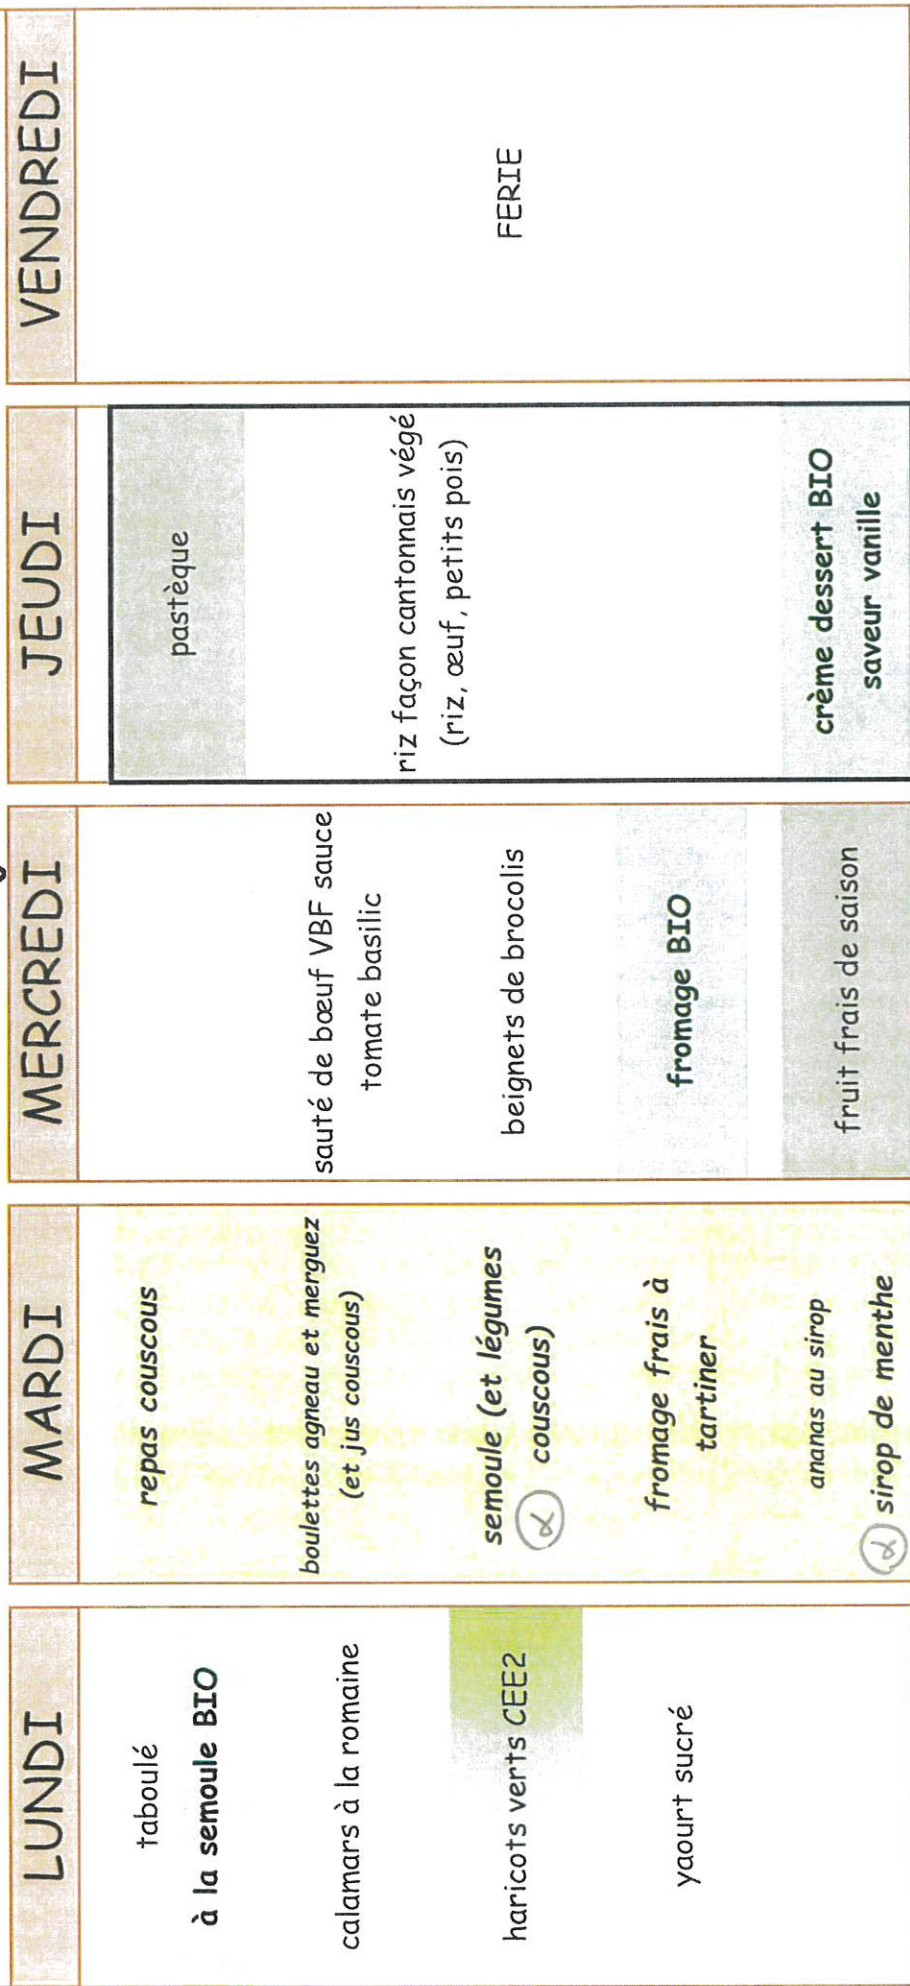 LUNDI
taboulé
à la semoule BIO
calamars à la romaine
haricots verts CEE2
yaourt sucré
MARDI
repas couscous
boulettes agneau et merguez
(et jus couscous)
semoule (et légumes
couscous)
fromage frais à
tartiner
ananas au sirop
sirop de menthe
MERCREDI
sauté de bœuf VBF sauce
tomate basilic
beignets de brocolis
fromage BIO
fruit frais de saison
JEUDI
pastèque
riz façon cantonnais végé
(riz, œuf, petits pois)
crème dessert BIO
saveur vanille
VENDREDI
FERIE